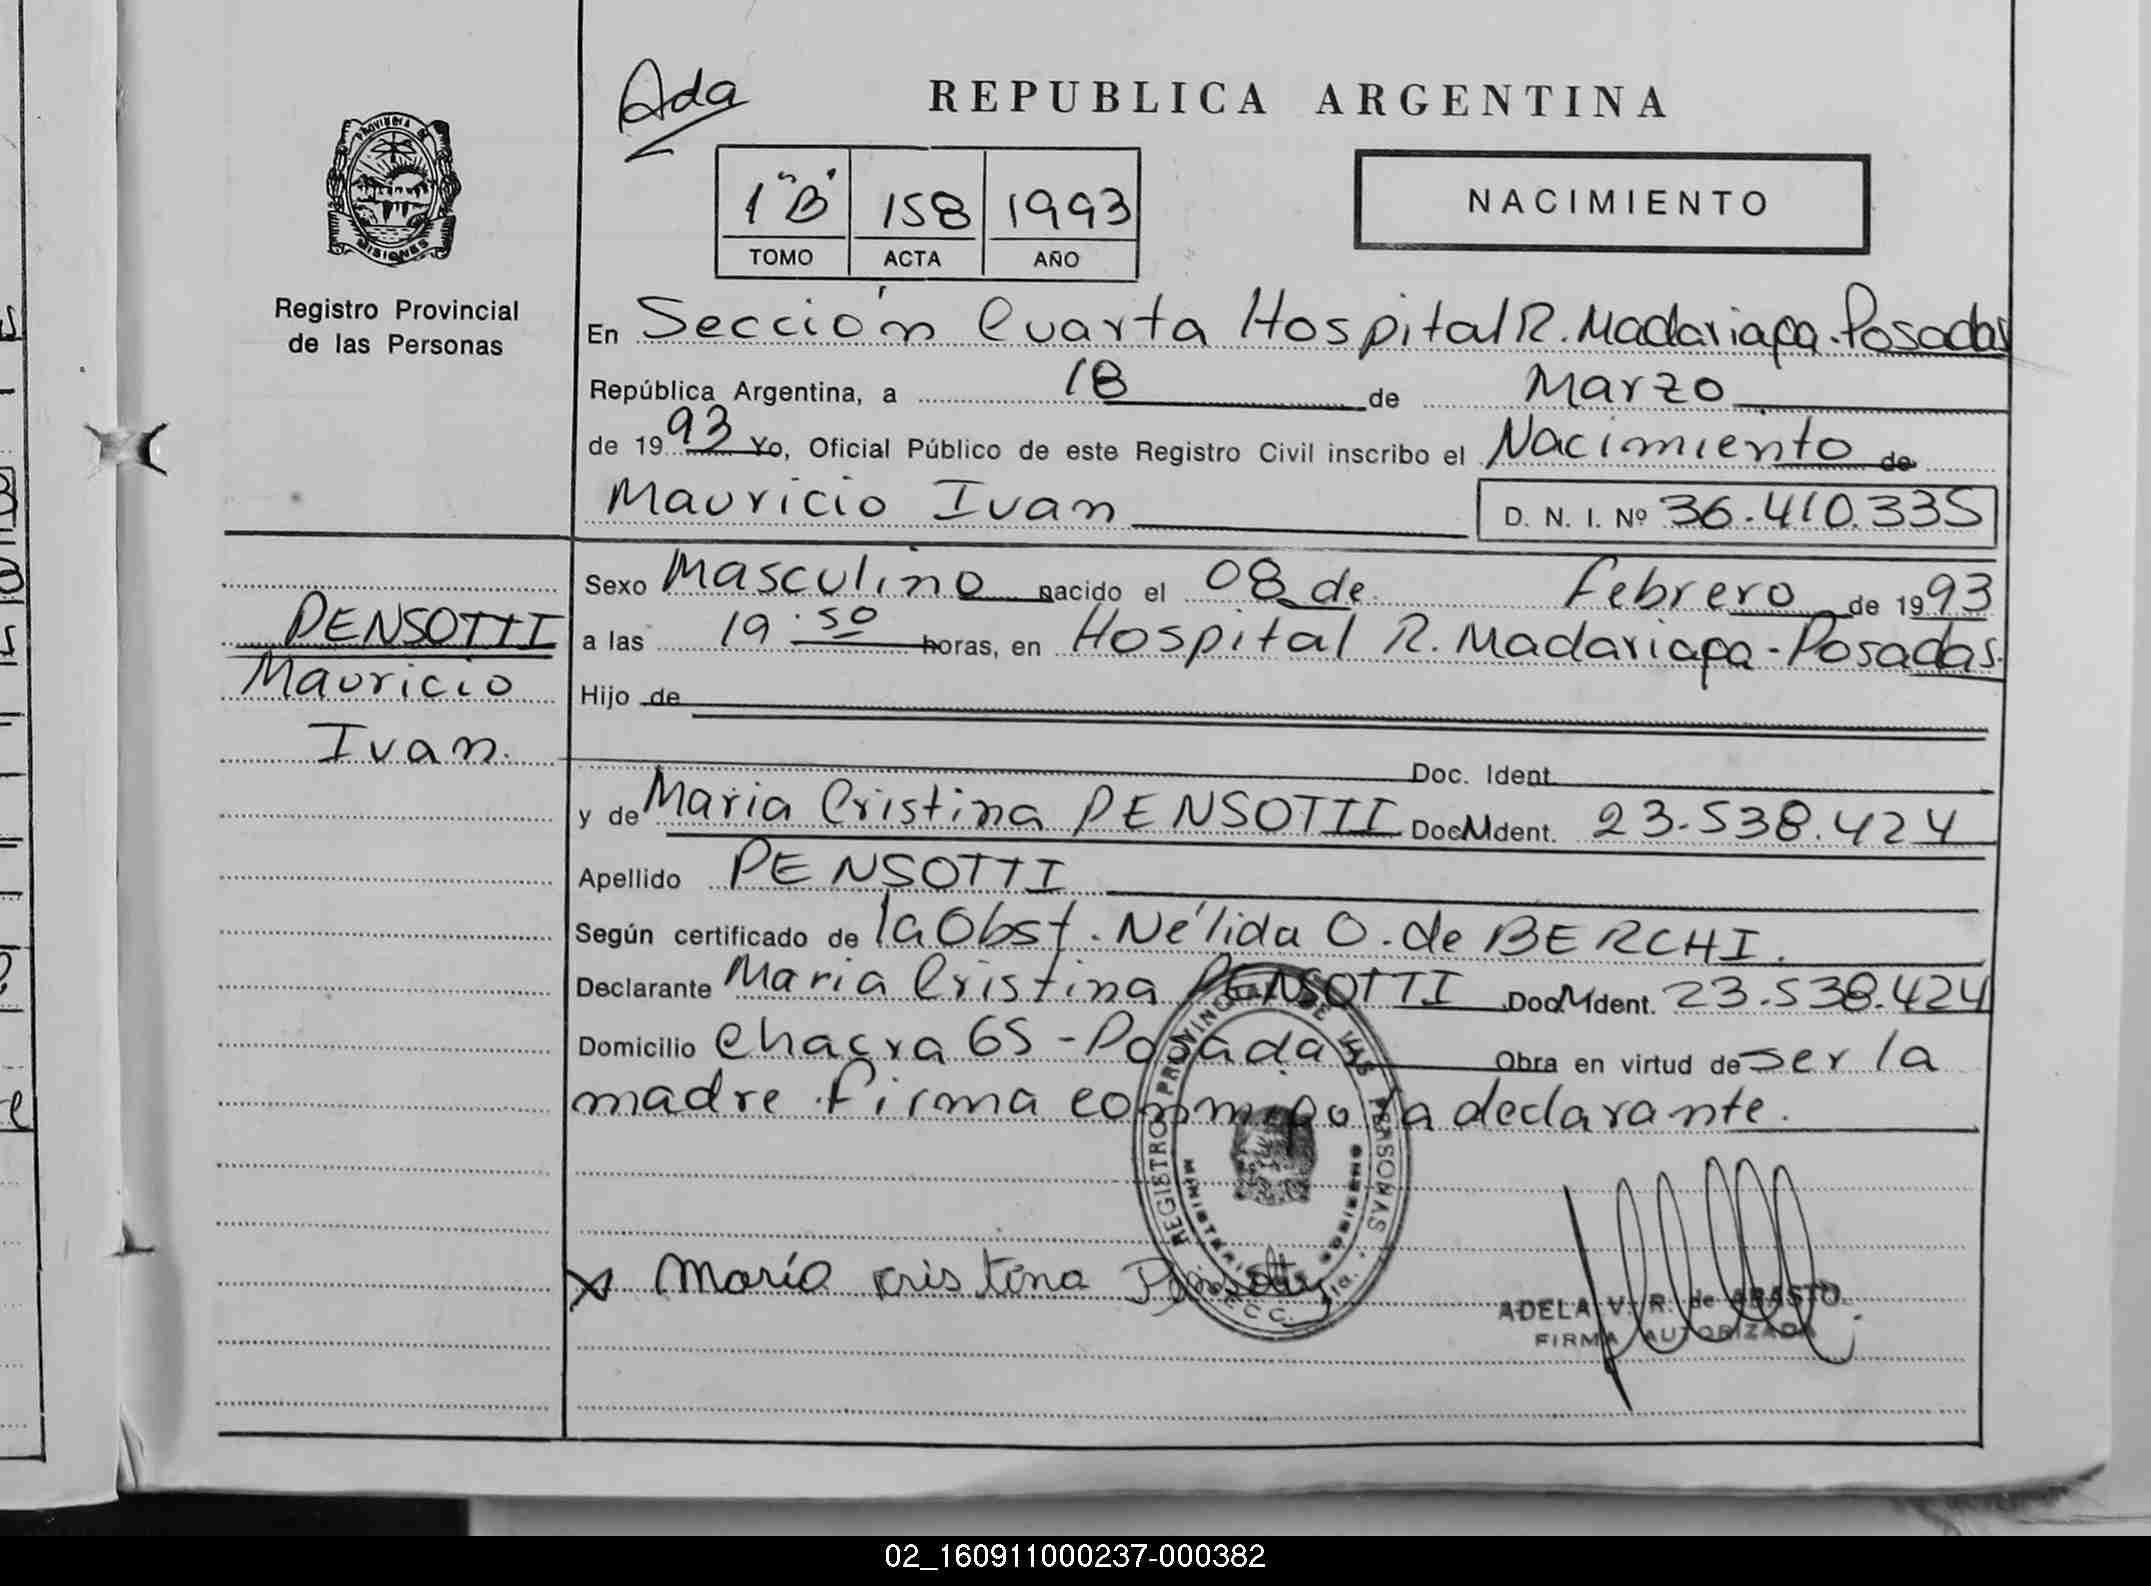 Ada
REPUBLICA ARGENTINA
PROVINCIA DE
MISIONES
Registro Provincial
de las Personas
1 "B" 158 1993
TOMO ACTA AÑO
NACIMIENTO
En Sección Cuarta Hospital R. Madariaga - Posadas
República Argentina, a 18 de Marzo
de 1993 Yo, Oficial Público de este Registro Civil inscribo el Nacimiento de
Mauricio Ivan D. N. I. Nº 36.410.335
Sexo Masculino nacido el 08 de Febrero de 1993
PENSOTTI
a las 19.50 horas, en Hospital R. Madariaga - Posadas.
Mauricio
Hijo de
Ivan.
Doc. Ident.
y de Maria Cristina PENSOTTI Doc. M Ident. 23.538.424
Apellido PENSOTTI
Según certificado de la Obst. Nélida O. de BERCHI.
Declarante Maria Cristina PENSOTTI Doc. M Ident. 23.538.424
Domicilio Chacra 65 - Posadas Obra en virtud de ser la
madre. Firma conmigo la declarante.
REGISTRO PROVINCIAL DE LAS PERSONAS
MINISTERIO DE GOBIERNO
x María cristina Pensotty
ADELA V. R. de ABASTO
FIRMA AUTORIZADA
02_160911000237-000382